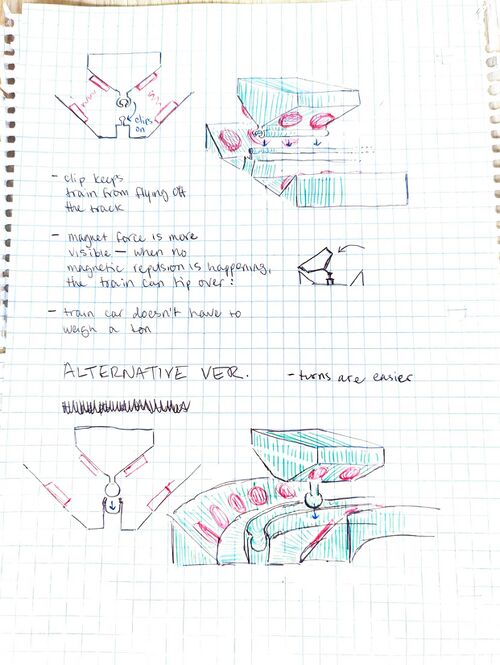 clips
on
- clip keeps
train from flying off
the track
- magnet force is more
visible — when no
magnetic repulsion is happening,
the train can tip over!
- train car doesn't have to
weigh a ton
ALTERNATIVE VER.
- turns are easier